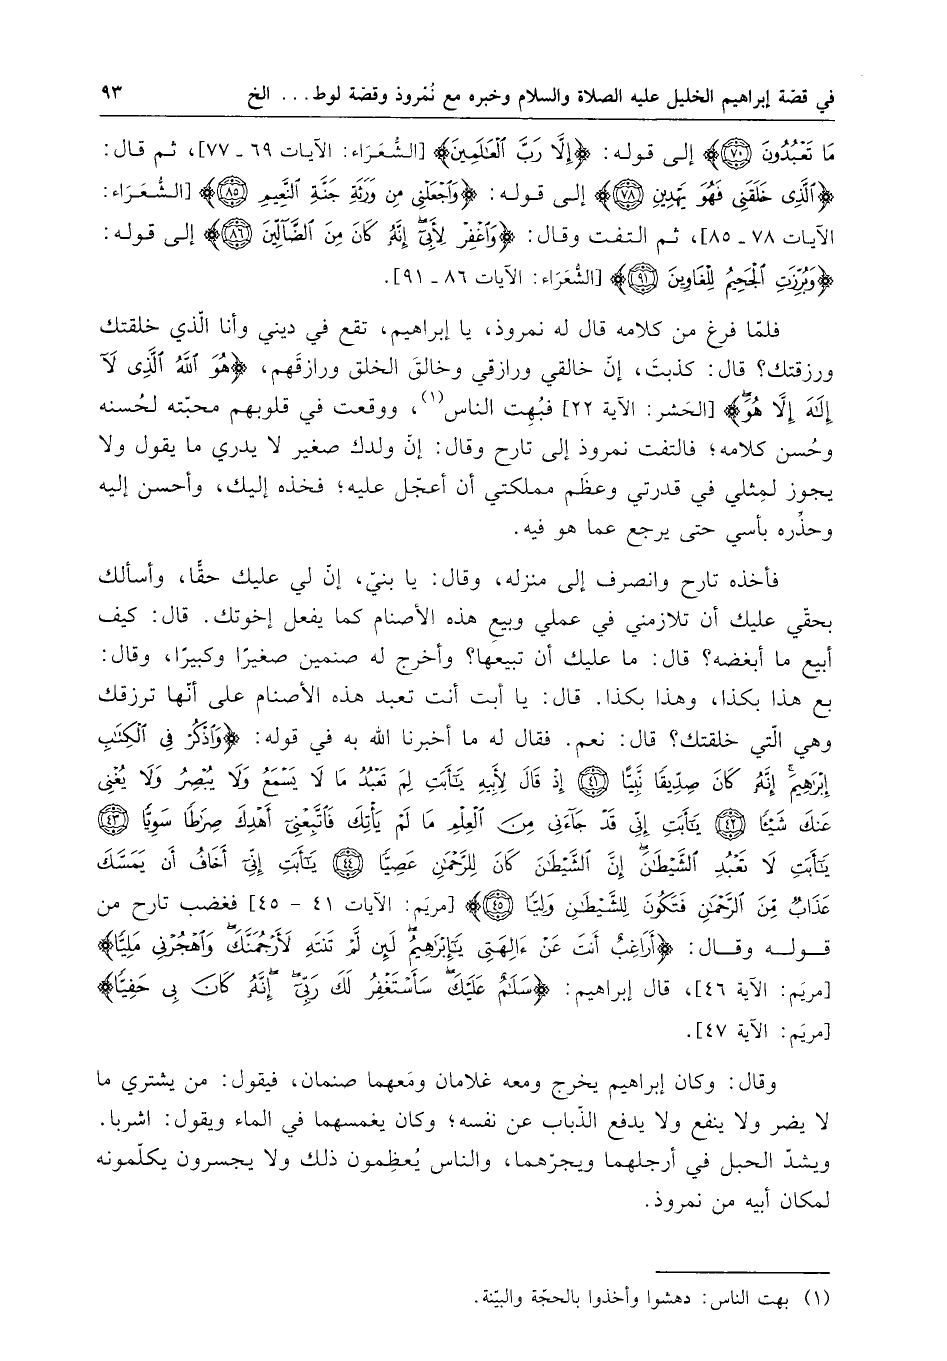 في قصّة إبراهيم الخليل عليه الصلاة والسلام وخبره مع نُمْروذ وقصّة لوط... الخ ٩٣
مَا تَعْبُدُونَ ﴿٧٠﴾﴾ إلى قوله: ﴿إِلَّا رَبَّ ٱلْعَٰلَمِينَ﴾ [الشُّعَرَاء: الآيات ٦٩ ـ ٧٧]، ثم قال:
﴿ٱلَّذِى خَلَقَنِى فَهُوَ يَهْدِينِ ﴿٧٨﴾﴾ إلى قوله: ﴿وَٱجْعَلْنِى مِن وَرَثَةِ جَنَّةِ ٱلنَّعِيمِ ﴿٨٥﴾﴾ [الشُّعَرَاء:
الآيات ٧٨ ـ ٨٥]، ثم التفت وقال: ﴿وَٱغْفِرْ لِأَبِىٓ إِنَّهُۥ كَانَ مِنَ ٱلضَّآلِّينَ ﴿٨٦﴾﴾ إلى قوله:
﴿وَبُرِّزَتِ ٱلْجَحِيمُ لِلْغَاوِينَ ﴿٩١﴾﴾ [الشُّعَرَاء: الآيات ٨٦ ـ ٩١].
فلمّا فرغ من كلامه قال له نمروذ، يا إبراهيم، تقع في ديني وأنا الّذي خلقتك
ورزقتك؟ قال: كذبتَ، إنّ خالقي ورازقي وخالقَ الخلق ورازقَهم، ﴿هُوَ ٱللَّهُ ٱلَّذِى لَآ
إِلَٰهَ إِلَّا هُوَ﴾ [الحَشر: الآية ٢٢] فبُهِت الناس(١)، ووقعت في قلوبهم محبّته لحُسنه
وحُسن كلامه؛ فالتفت نمروذ إلى تارح وقال: إنّ ولدك صغير لا يدري ما يقول ولا
يجوز لمِثلي في قدرتي وعظَم مملكتي أن أعجّل عليه؛ فخذه إليك، وأحسن إليه
وحذِّره بأسي حتى يرجع عما هو فيه.
فأخذه تارح وانصرف إلى منزله، وقال: يا بنيّ، إنّ لي عليك حقًّا، وأسألك
بحقّي عليك أن تلازمني في عملي وبيعِ هذه الأصنام كما يفعل إخوتك. قال: كيف
أبيع ما أبغضه؟ قال: ما عليك أن تبيعها؟ وأخرج له صنمين صغيرًا وكبيرًا، وقال:
بع هذا بكذا، وهذا بكذا. قال: يا أبت أنت تعبد هذه الأصنام على أنّها ترزقك
وهي الّتي خلقتك؟ قال: نعم. فقال له ما أخبرنا الله به في قوله: ﴿وَٱذْكُرْ فِى ٱلْكِتَٰبِ
إِبْرَٰهِيمَ إِنَّهُۥ كَانَ صِدِّيقًا نَّبِيًّا ﴿٤١﴾ إِذْ قَالَ لِأَبِيهِ يَٰٓأَبَتِ لِمَ تَعْبُدُ مَا لَا يَسْمَعُ وَلَا يُبْصِرُ وَلَا يُغْنِى
عَنكَ شَيْـًٔا ﴿٤٢﴾ يَٰٓأَبَتِ إِنِّى قَدْ جَآءَنِى مِنَ ٱلْعِلْمِ مَا لَمْ يَأْتِكَ فَٱتَّبِعْنِىٓ أَهْدِكَ صِرَٰطًا سَوِيًّا ﴿٤٣﴾
يَٰٓأَبَتِ لَا تَعْبُدِ ٱلشَّيْطَٰنَ إِنَّ ٱلشَّيْطَٰنَ كَانَ لِلرَّحْمَٰنِ عَصِيًّا ﴿٤٤﴾ يَٰٓأَبَتِ إِنِّىٓ أَخَافُ أَن يَمَسَّكَ
عَذَابٌ مِّنَ ٱلرَّحْمَٰنِ فَتَكُونَ لِلشَّيْطَٰنِ وَلِيًّا ﴿٤٥﴾﴾ [مريَم: الآيات ٤١ - ٤٥] فغضب تارح من
قوله وقال: ﴿أَرَاغِبٌ أَنتَ عَنْ ءَالِهَتِى يَٰٓإِبْرَٰهِيمُ لَئِن لَّمْ تَنتَهِ لَأَرْجُمَنَّكَ وَٱهْجُرْنِى مَلِيًّا﴾
[مريَم: الآية ٤٦]، قال إبراهيم: ﴿سَلَٰمٌ عَلَيْكَ سَأَسْتَغْفِرُ لَكَ رَبِّىٓ إِنَّهُۥ كَانَ بِى حَفِيًّا﴾
[مريَم: الآية ٤٧].
وقال: وكان إبراهيم يخرج ومعه غلامان ومَعهما صنمان، فيقول: من يشتري ما
لا يضر ولا ينفع ولا يدفع الذّباب عن نفسه؛ وكان يغمسهما في الماء ويقول: اشربا.
ويشدّ الحبل في أرجلهما ويجرّهما، والناس يُعظِمون ذلك ولا يجسرون يكلّمونه
لمكان أبيه من نمروذ.
(١) بهت الناس: دهشوا وأخذوا بالحجّة والبيّنة.